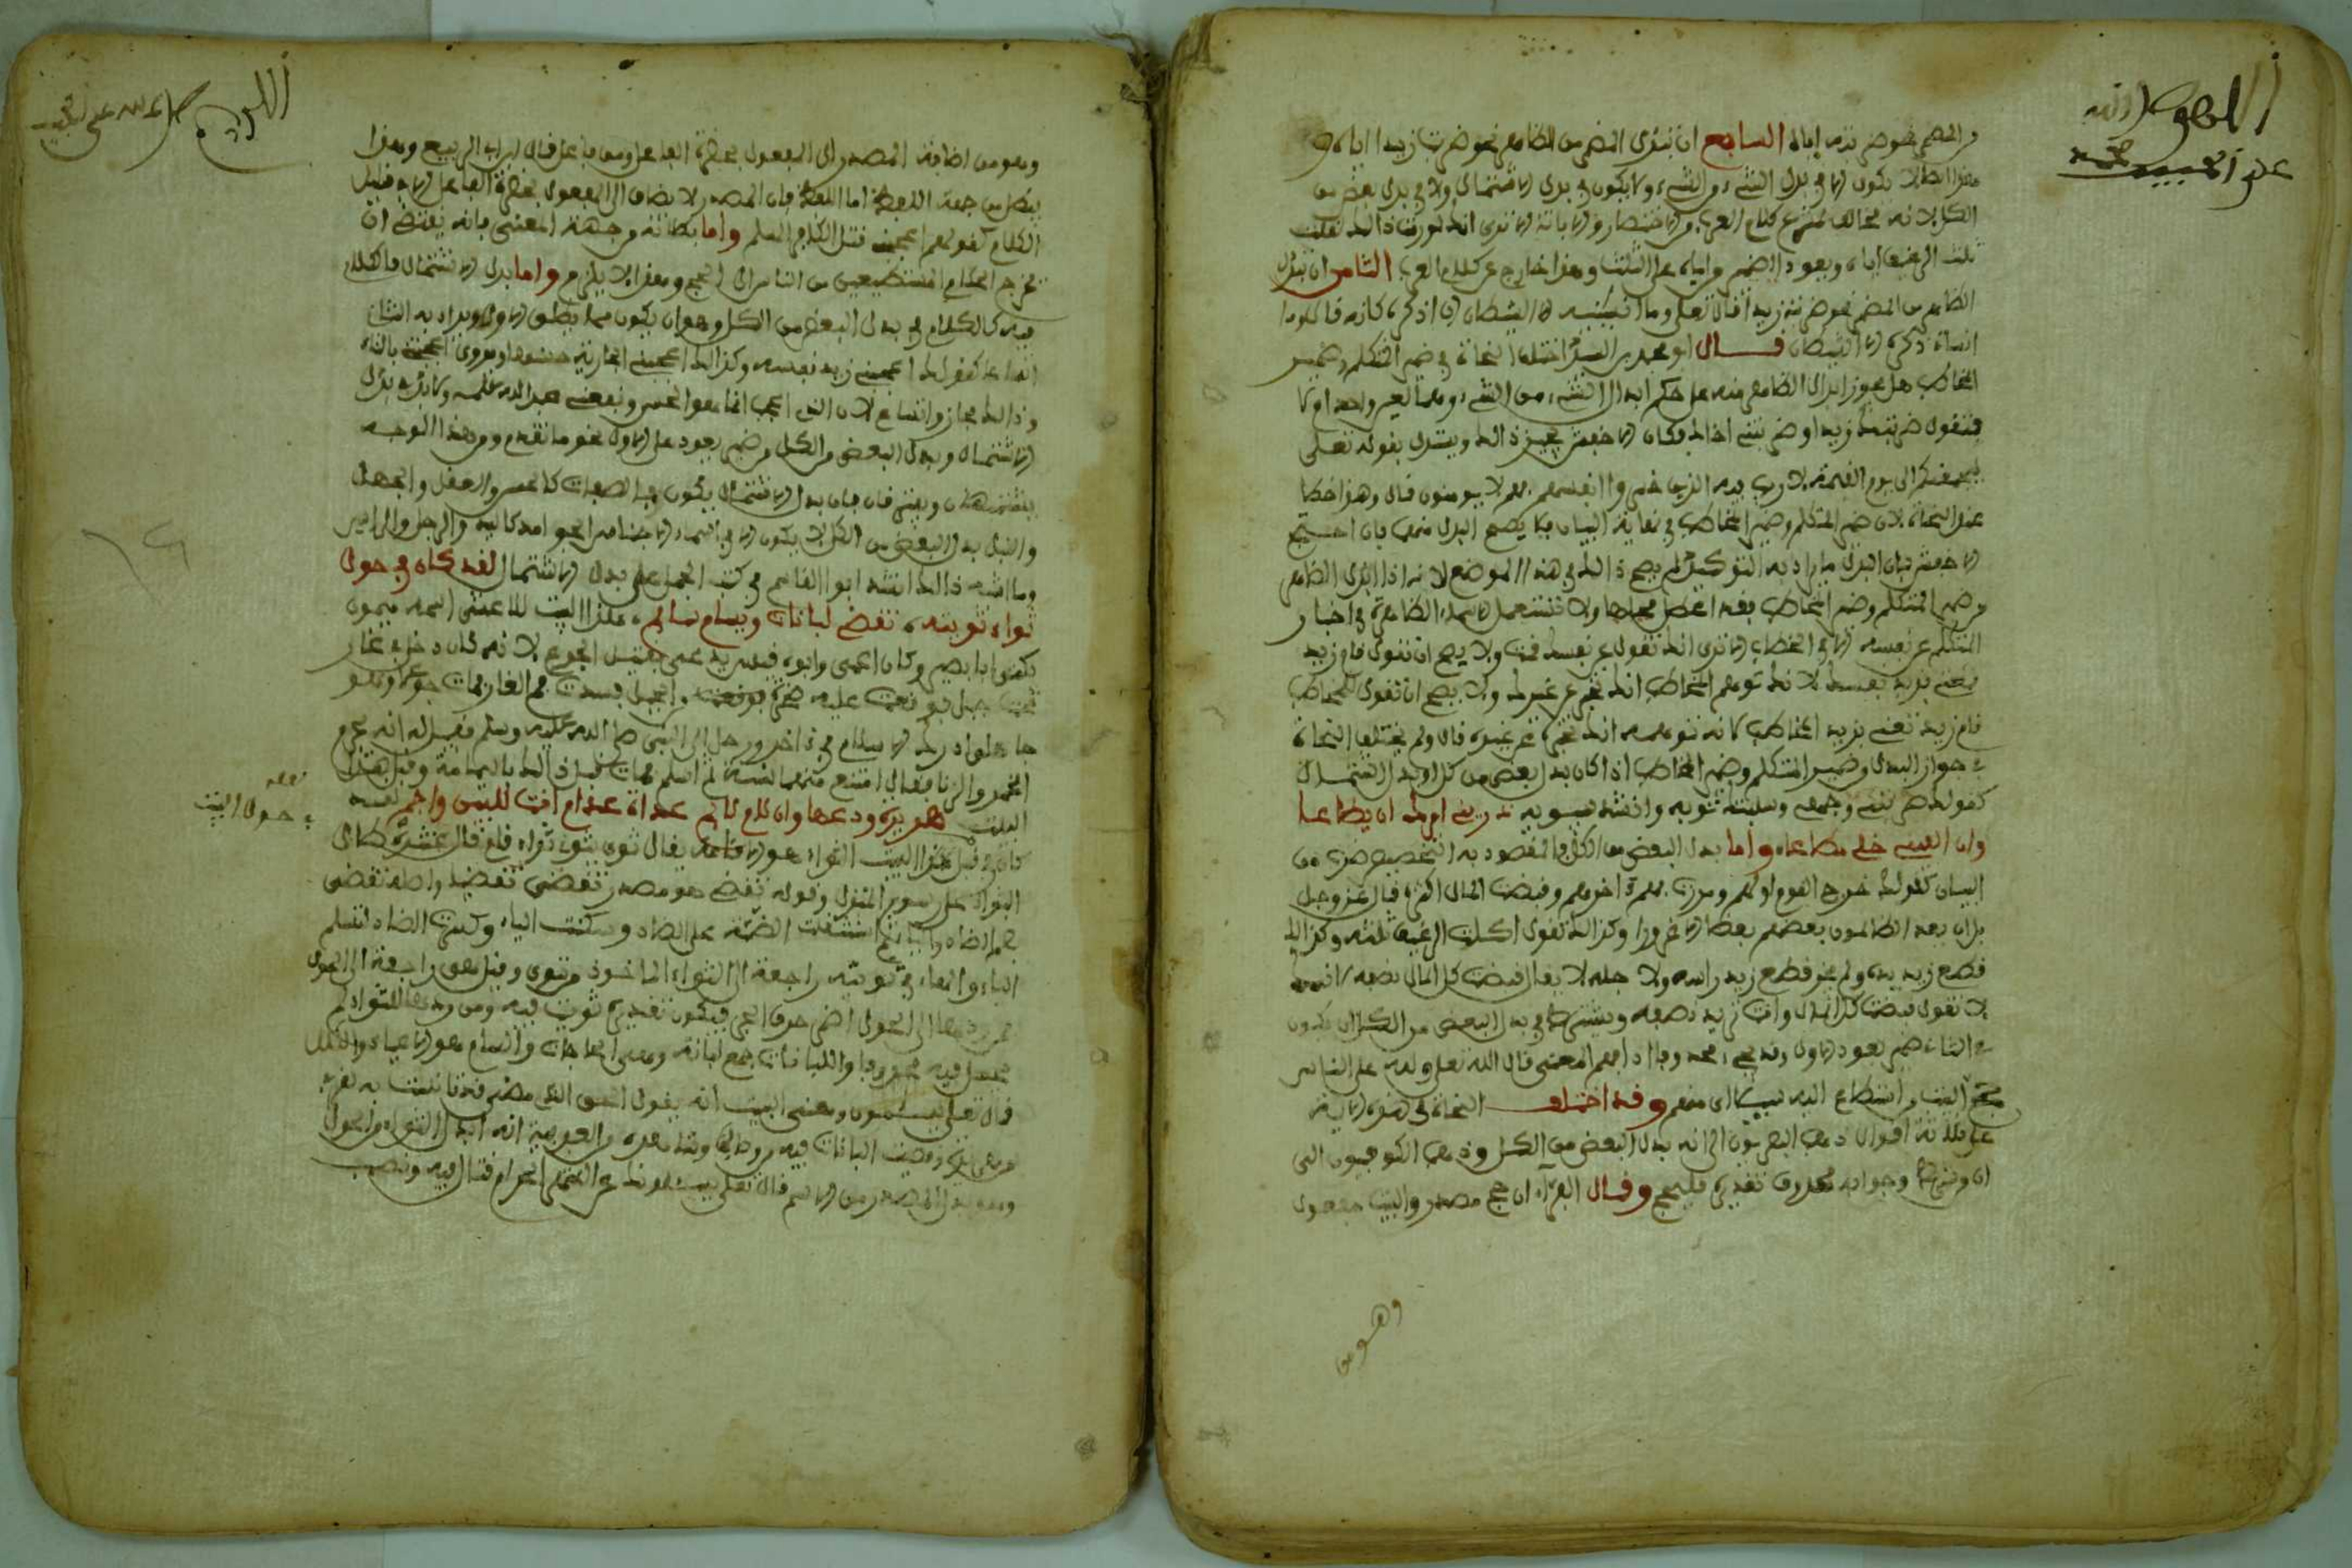 اللهم صل
على الحبيب محمد
من المضمر نحو ضربته إياه السابع ان تبدل المضمر من الظاهر نحو ضربت زيدا اياه و
هذا ايضا لا يكون الا في بدل الشيء من الشيء ولا يكون في بدل الاشتمال ولا في بدل بعض من
الكل لانه مخالف لمنزع كلام العرب من الاختصار والابانة الا ترى انك لو رمت ذالك لقلت
ثلث الرغيف اياه ويعود الضمير واياه على الثلث وهذا خارج عن كلام العرب الثامن ان تبدل
الظاهر من المضمر نحو ضربته زيدا قال تعلى وما انسنيه الا الشيطان ان اذكره كانه قال وما
انساني ذكره الا الشيطان قال ابو محمد بن السيد اختلف النحاة في ضمير المتكلم وضمير
المخاطب هل يجوز ابدال الظاهر منه على حكم ابدال الشيء من الشيء وهما لعين واحدة ام لا
فتقول ضربتك زيدا وضربتني اخاك فكان الاخفش يجيز ذالك ويستدل بقوله تعلى
ليجمعنكم الى يوم القيمة لا ريب فيه الذين خسروا انفسهم فهم لا يومنون قال وهذا خطا
عند النحاة لان ضمير المتكلم وضمير المخاطب في نهاية البيان فلا يصح البدل منهما فان احتج
الاخفش بان البدل ما يراد به التوكيد لم يصح ذالك في هذا الموضع لانه اذا ابدل الظاهر
من ضمير المتكلم وضمير المخاطب فقد اعطي محلها ولا تستعمل الاسماء الظاهرة في اخبار
المتكلم عن نفسه ولا في الخطاب الا ترى انك تقول عن نفسك قمت ولا يصح ان تقول قام زيد
فتعني بزيد نفسك لانك توهم المخاطب انك تخبر عن غيرك ولا يصح ان تقول للمخاطب
قام زيد تعني بزيد المخاطب لانه تتوهمه انك تخبره عن غيره قال ولم يختلف النحاة
في جواز البدل من ضمير المتكلم وضمير المخاطب اذا كان بدل بعض من كل او بدل اشتمال
كقولك ضربتني وجهي وسلبتك ثوبه وانشد سبويه ذريني ان امرك لن يطاعا
وما الفيتني حلمي مضاعا واما بدل البعض من الكل فالمقصود به التخصيص ضرب من
البيان كقولك خرج القوم اولهم ومررت بهم اخرهم وقبضت المال اكثره قال عز وجل
بل ان يعد الظالمون بعضهم بعضا الا غرورا وكذالك تقول اكلت الرغيف ثلثه وكذالك
قطع زيد يده ولم يجز قطع زيد راسه ولا جله لا يقال قبضت كل المال نصفه لانه
لا تقول قبضت كل المال وانت تريد نصفه ويشترط في بدل البعض من الكل ان يكون
في الثاني ضمير يعود للاول وقد يجيء محذوفا اذا فهم المعنى قال الله تعلى ولله على الناس
حج البيت من استطاع اليه سبيلا اي منهم وقد اختلف النحاة في هذه الاية
على ثلاثة اقوال ذهب البصريون الى انه بدل البعض من الكل وذهب الكوفيون الى
ان من شرط وجوابه محذوف تقديره فليحج وقال الفراء ان حج مصدر والبيت مفعول
وهو من
اللهم صل على الحبيب
وهو من اضافة المصدر الى المفعول بحضرة الفاعل ومن فاعل قال ابن ابي الربيع وهذا
يبطل من جهة اللفظ اما اللفظ فان المصدر لا يضاف الى المفعول بحضرة الفاعل الا في قليل
الكلام كقولهم اعجبني قتل الكافر المسلم واما بطلانه من جهة المعنى فانه يقتضي ان
يخرج الحكم المستطيعين من الناس الى الحج وهذا لا يلزم واما بدل الاشتمال فالكلام
فيه كالكلام في بدل البعض من الكل وهو ان يكون مما يطلق الاول ويراد به الثاني
اتساعا كقولك اعجبني زيد نفسه وكذالك اعجبتني الجارية حسنها ويروى اعجبني بالتاء
وذالك مجاز واتساع لان الذي اعجب انما هو الحسن ونفعني عبد الله علمه ولا بد في بدل
الاشتمال وبدل البعض من الكل من ضمير يعود على الاول نحو ما تقدم ومن هذا الوجه
يشتبهان ويفترقان فان بدل الاشتمال يكون في الصفات كالحسن والعقل والجهل
والنبل وبدل البعض من الكل لا يكون الا في اسماء الاجناس الجوامد كاليد والرجل والراس
وما اشبه ذالك انشد ابو القاسم في كتاب الجمل على بدل الاشتمال لقد كان في حول
ثواء ثويته، تقضي لبانات ويسام سائم، هذا البيت للاعشى اسمه ميمون
يكنى ابا بصير وكان اعمى وابوه قيل بن يد عمي قتيل الجوع لانه كان دخل في غار
تحت جبل فوقعت عليه صخرة من الجبل فسدت فم الغار فمات جوعا وهو
جاهلي ادرك الاسلام في اخر ورحل الى النبي صلى الله عليه وسلم فقيل له انه يحرم
الخمر والزنا فقال اتمتع منهما سنة ثم اسلم فمات قبل ذالك باليمامة وقبل هذا
البيت هريرة ودعها وان لام لائم، غداة غد ام انت للبين واجم لقد
كان في قبل هذا البيت الثواء هو الاقامة يقال ثوى يثوي ثواء قام قال عنترة طال
الثواء على رسوم المنزل وقوله تقضي هو مصدر تقضى تقضيا واصله تقضى
بضم الضاد والياء ثم استثقلت الضمة على الضاد وسكنت الياء وكسرت الضاد لتسلم
الياء والهاء في ثويته راجعة الى الثواء الماخوذ من ثوى وقيل هي راجعة الى الحول
فمن ردها الى الحول اضمر حرف الجر فيكون تقديره ثويت فيه ومن ردها للثواء لم
يجعل فيه محذوفا واللبانات جمع لبانة وهي الحاجات والسام هو الاعياء والملل
قال تعلى لا يسئمون ومعنى البيت انه يقول الحول الذي مضى قد ثويت به
وقضيت اللبانات فيه وشاهده من العربية انه ابدل الثواء من الحول
وهو بدل المصدر من الاسم قال تعلى يسئلونك عن الشهر الحرام قتال فيه وتصب
في حول البيت